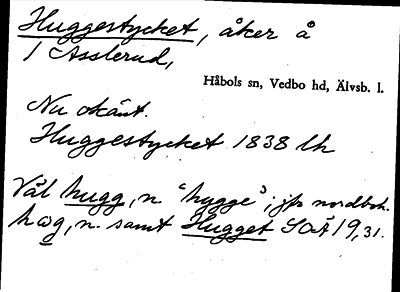 Huggestycket, åker å
1 Asslerud,
Håbols sn, Vedbo hd, Älvsb. l.
Nu okänt.
Huggestycket 1838 lh
Väl hugg, n. "hygge"; jfr nordboh.
hɷg, n. samt Hugget SOÄ 19, 31.